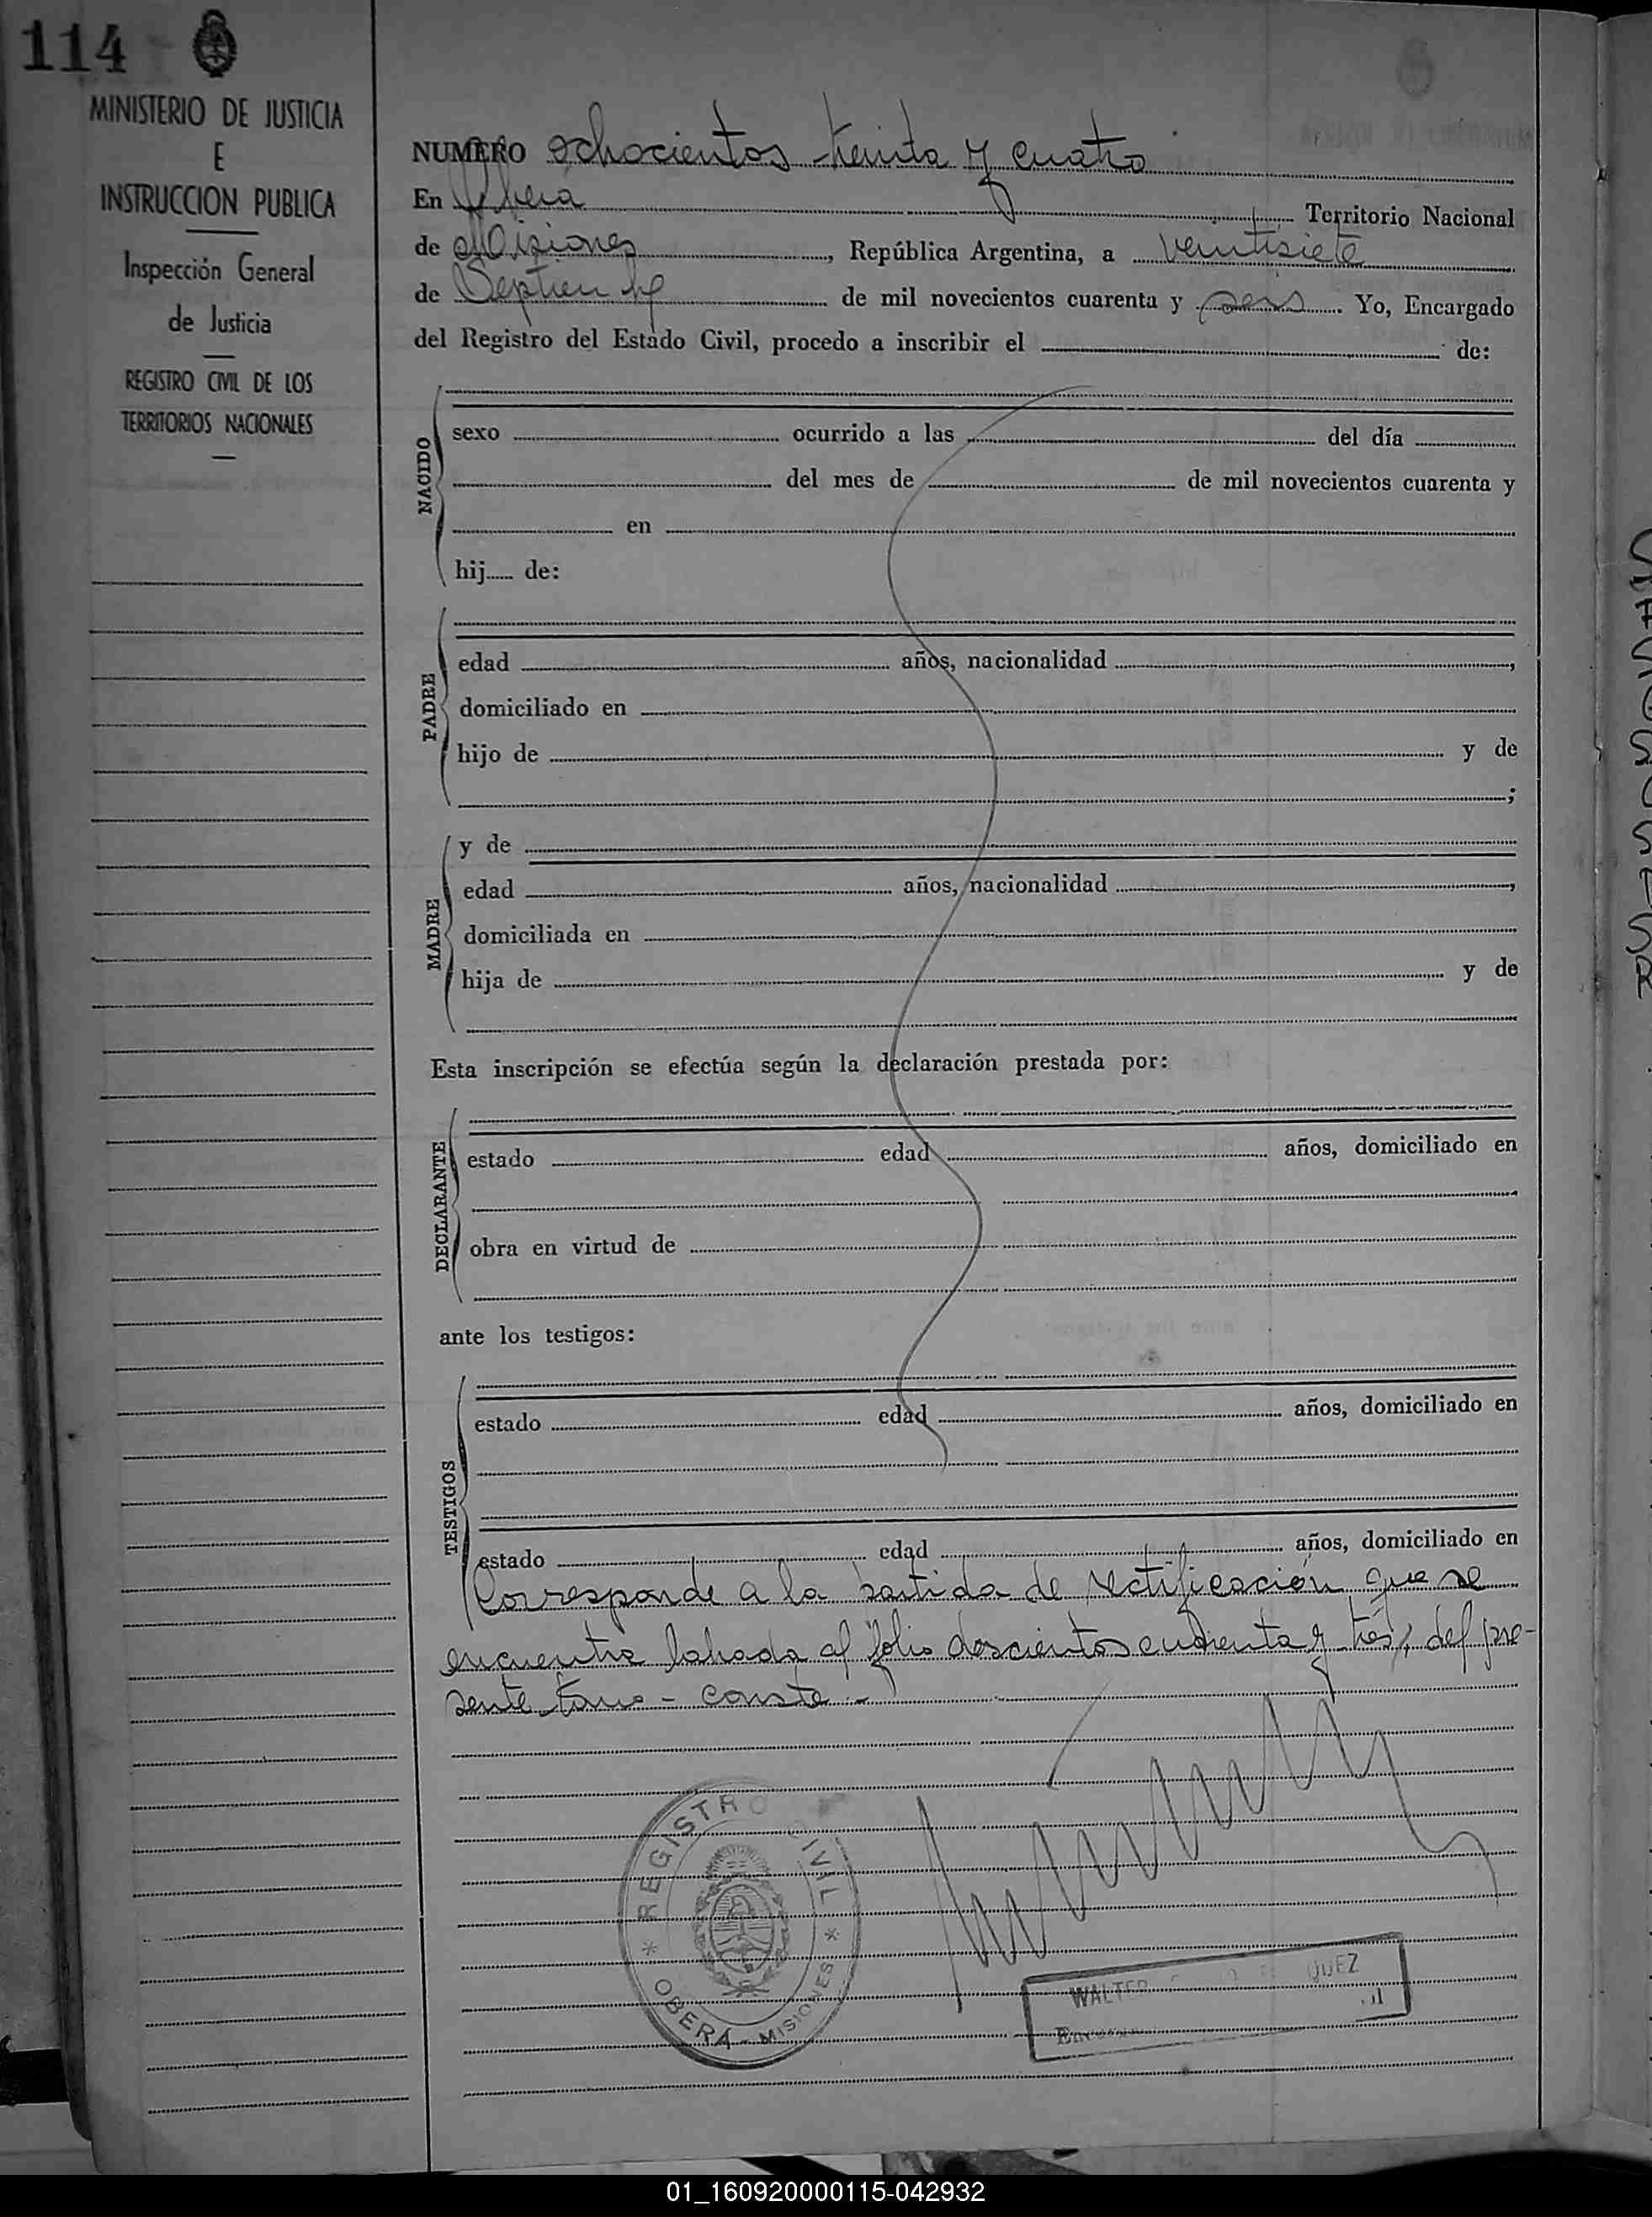 114
MINISTERIO DE JUSTICIA
E
INSTRUCCION PUBLICA
Inspección General
de Justicia
REGISTRO CIVIL DE LOS
TERRITORIOS NACIONALES
NUMERO ochocientos treinta y cuatro
En Obera Territorio Nacional
de Misiones, República Argentina, a veintisiete
de Septiembre de mil novecientos cuarenta y seis. Yo, Encargado
del Registro del Estado Civil, procedo a inscribir el de:
NACIDO
sexo ocurrido a las del día
del mes de de mil novecientos cuarenta y
en
hij de:
PADRE
edad años, nacionalidad ,
domiciliado en
hijo de y de
;
MADRE
y de
edad años, nacionalidad ,
domiciliada en
hija de y de
Esta inscripción se efectúa según la declaración prestada por:
DECLARANTE
estado edad años, domiciliado en
obra en virtud de
ante los testigos:
TESTIGOS
estado edad años, domiciliado en
estado edad años, domiciliado en
Corresponde a la partida de rectificación que se
encuentra labrada al folio doscientos cuarenta y tres, del pre-
sente tomo - conste -
* REGISTRO CIVIL *
OBERA - MISIONES
WALTER QUEZ
01_160920000115-042932